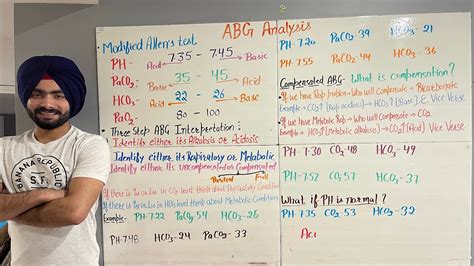 ABG Analysis
Modified Allen's test
PH - 7.35 - 7.45
Acid Basic
PaCO₂ - 35 - 45
Basic Acid
HCO₃ - 22 - 26
Acid Basic
PaO₂ - 80 - 100
Three Step ABG Interpretation:
Identify either its Alkalosis or Acidosis
Identify either its Respiratory or Metabolic
Identify either its uncompensated or Compensated
Partial Full
If there is in CO₂ level think about Respiratory Condition
If there is in HCO₃ level think about Metabolic Condition
Example:- PH-7.22 PaCO₂-54 HCO₃-26
PH-7.48 HCO₃-24 PaCO₂-33
PH-7.20 PaCO₂-39 HCO₃-21
PH-7.55 PaCO₂-44 HCO₃-36
Compensated ABG- What is compensation?
If we have Resp problem → Who will compensate → Bicarbonate
Example → CO₂↑ (Resp acidosis) → HCO₃↑ (Base) & Vice Verse
If we have Metabolic Prob → Who will compensate → CO₂
Example → HCO₃↑ (Metabolic alkalosis) → CO₂↑ (Acid) Vice Verse
PH-7.30 CO₂-48 HCO₃-49
PH-7.52 CO₂-57 HCO₃-37
What if PH is normal?
PH-7.35 CO₂-53 HCO₃-32
Aci
BANANA REPUBLIC
S.F.